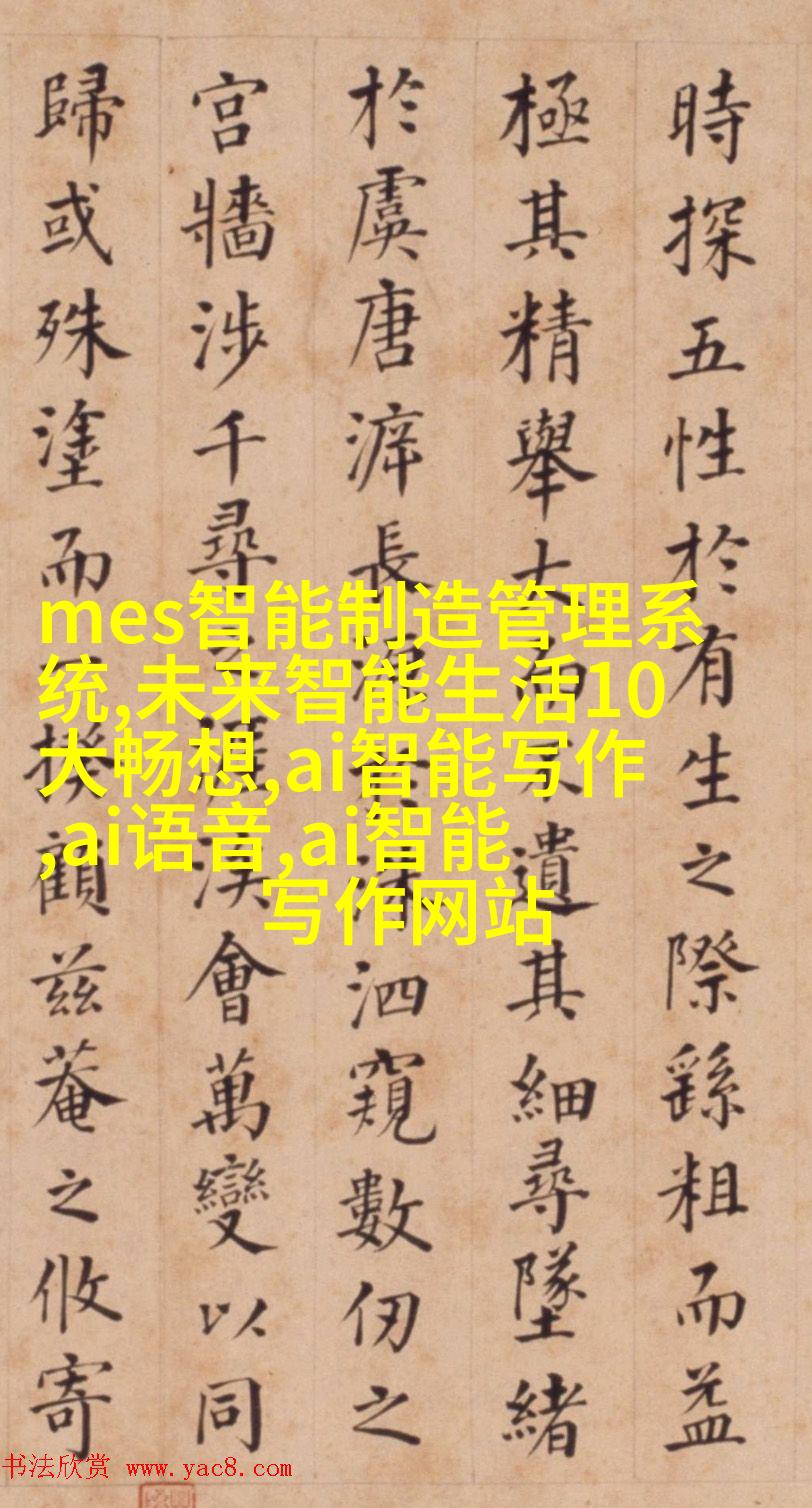 時探五性於有生之際繇粗而益
極其精舉大而不遺其細尋墜緒
於虞唐長泗窺數仞之
宮牆涉千尋之涯涘會萬變以同
歸或殊塗而一揆顧茲菴之攸寄
mes智能制造管理系
统,未来智能生活10
大畅想,ai智能写作
,ai语音,ai智能
写作网站
书法欣赏 www.yac8.com